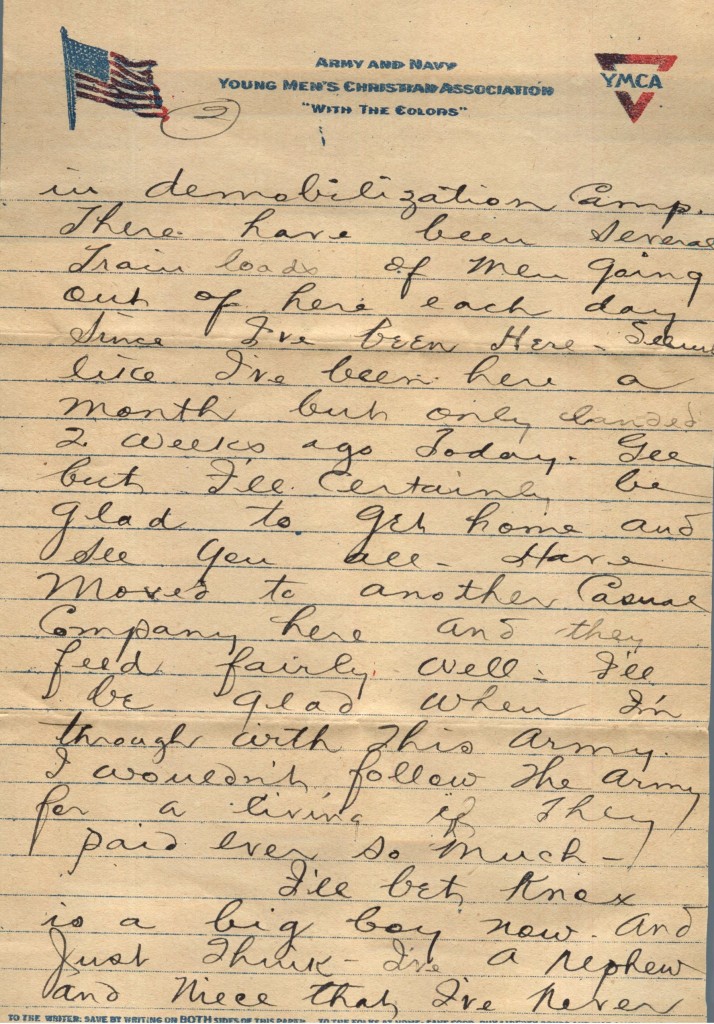 ARMY AND NAVY
YOUNG MEN'S CHRISTIAN ASSOCIATION
"WITH THE COLORS"
YMCA
2
in demobilization Camp.
There have been several
Train loads of men going
out of here each day
since I've been Here - Seems
like I've been here a
month but only landed
2 weeks ago Today. Gee
but I'll Certainly be
glad to get home and
see you all - Have
moved to another Casual
Company here and they
feed fairly well - I'll
be glad when I'm
through with This Army.
I wouldn't follow The Army
for a living if They
paid ever so much -
I'll bet Knox
is a big boy now. And
Just Think - I've a nephew
and niece that I've never
TO THE WRITER: SAVE BY WRITING ON BOTH SIDES OF THIS PAPER